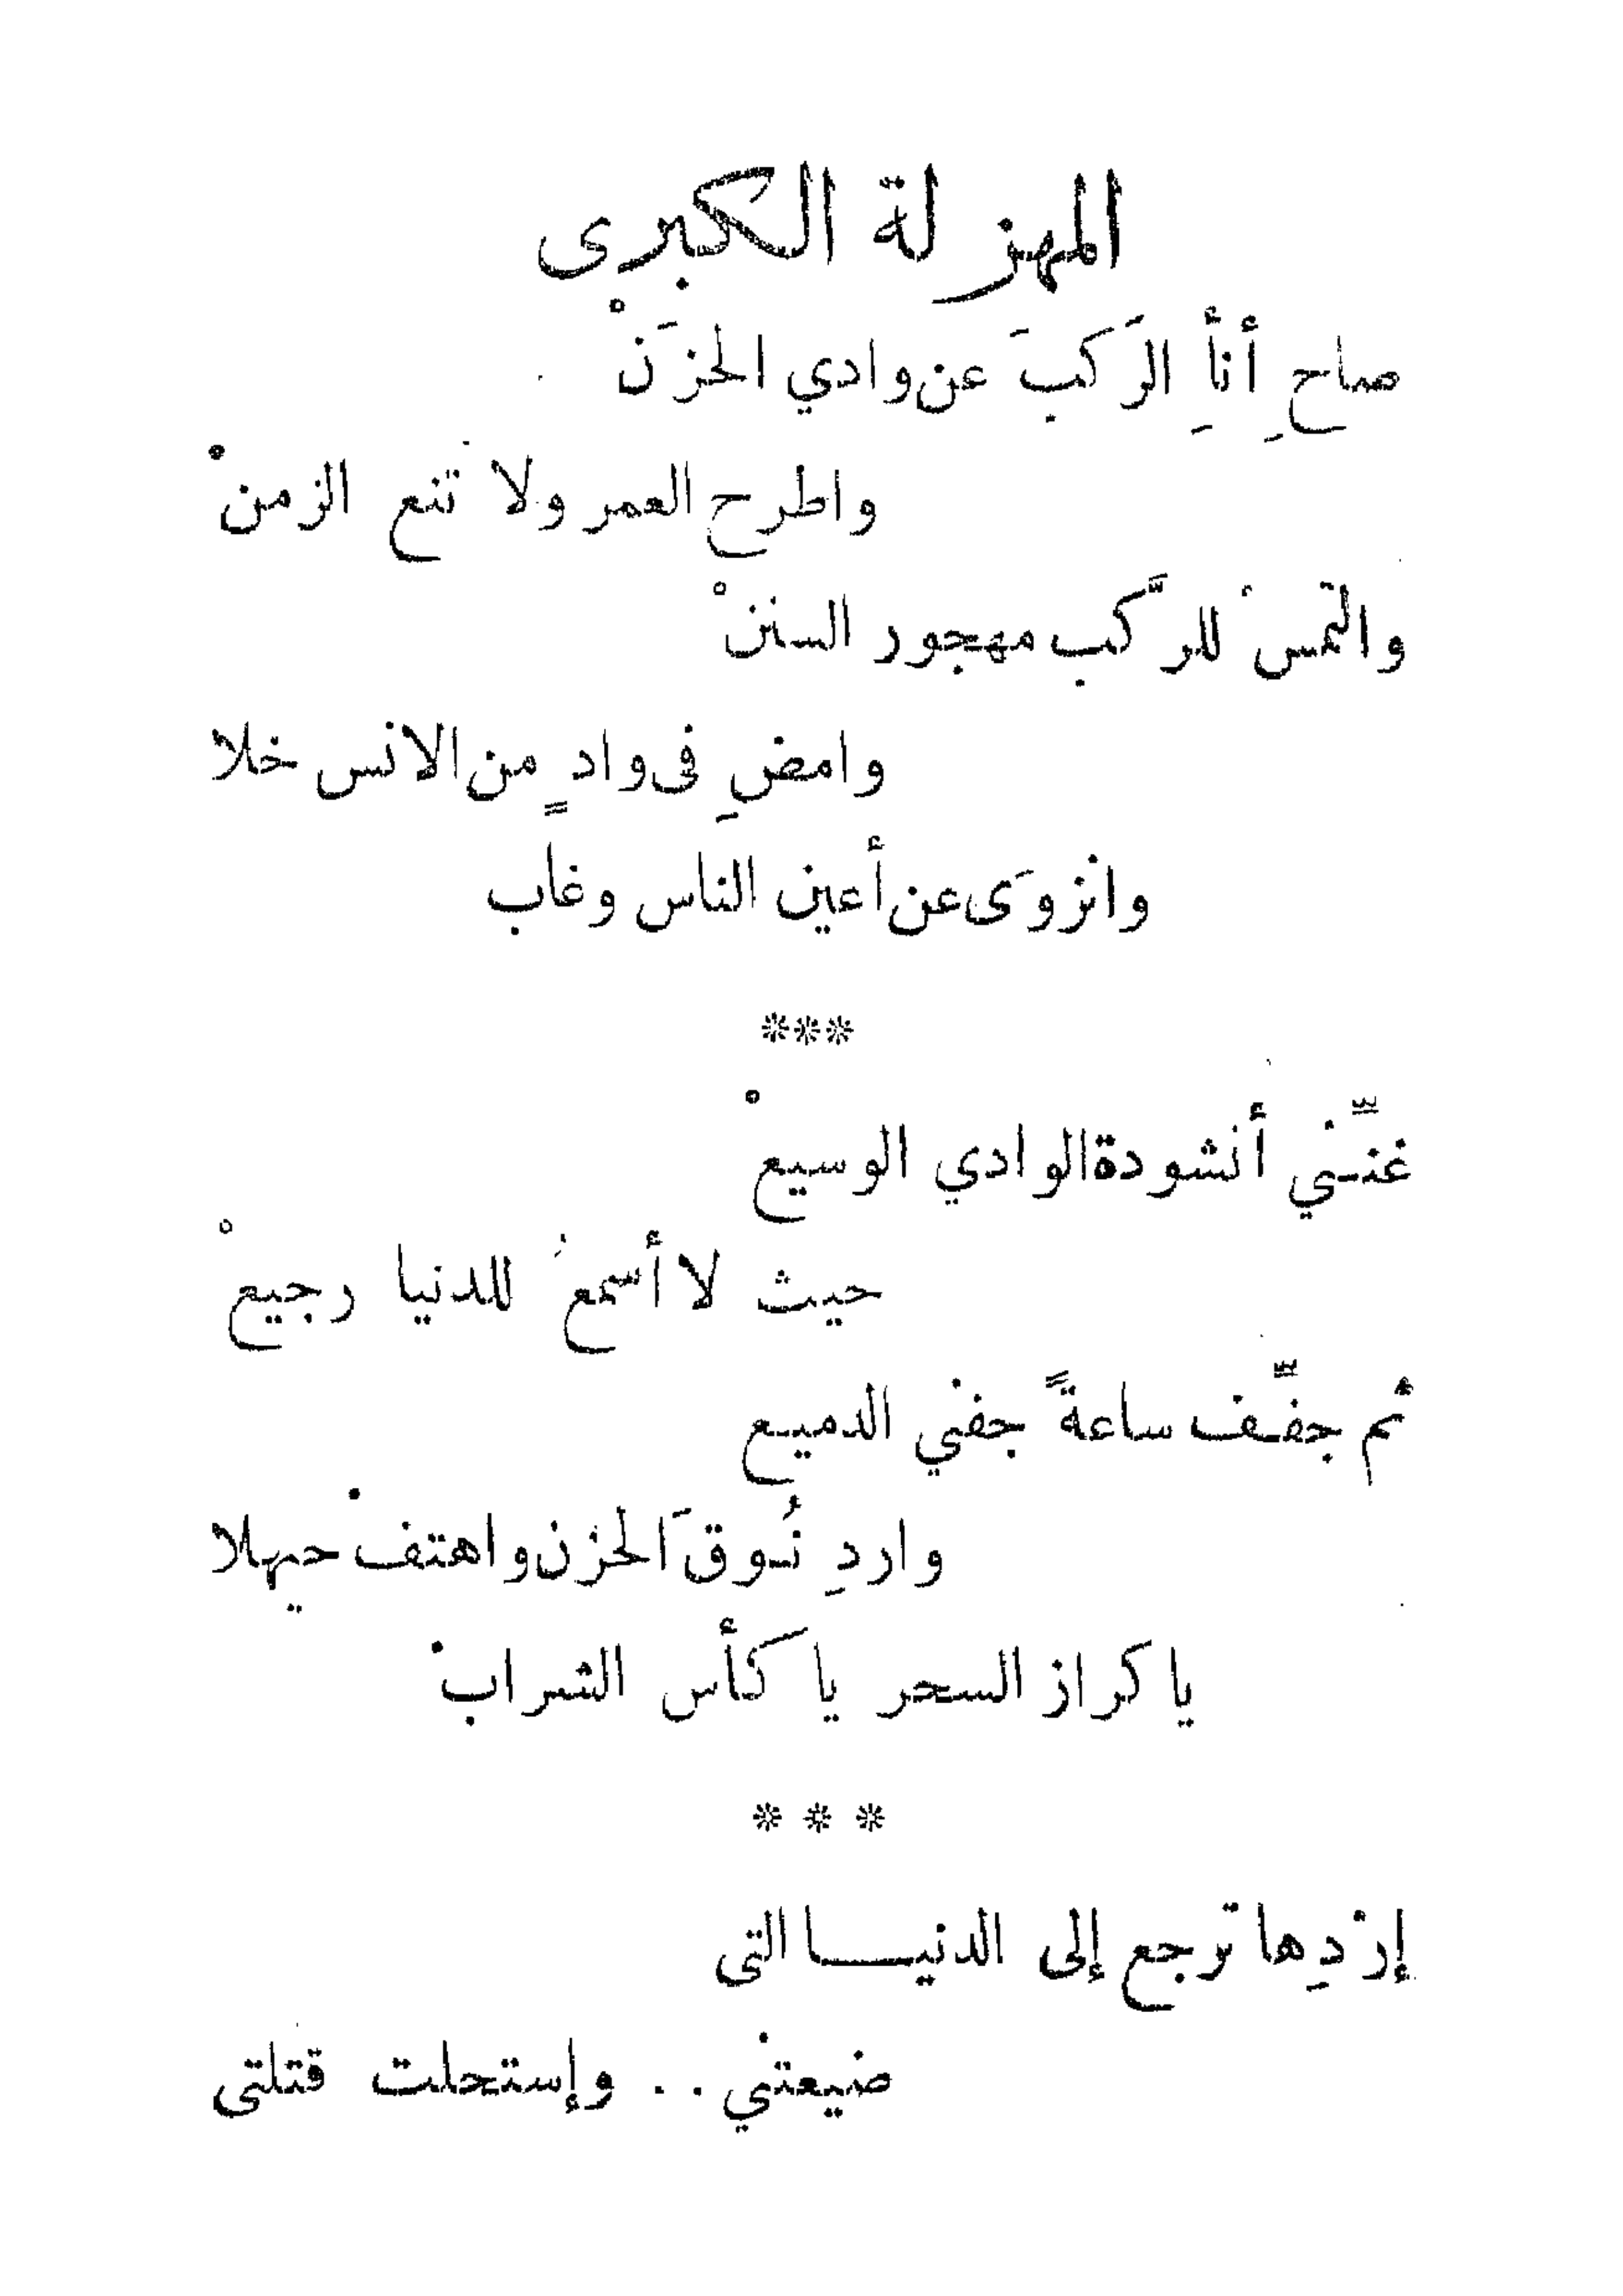 المهزلة الكبرى
صاحِ أنأِ الرَكبَ عن وادي الحزَنْ
واطرح العمر ولا تنع الزمنْ
والتمسْ للرَّكب مهجور السننْ
وامضِ فى وادٍ من الانس خلا
وانزوَى عن أعين الناس وغاب
***
غنِّـني أنشودة الوادي الوسيعْ
حيث لا أسمعُ للدنيا رجيعْ
ثم جفِّـف ساعةً جفني الدميـع
واردِ نُـوقَ الحزن واهتفْ حيهلا
يا كراز السحر يا كأس الشرابْ
* * *
إرْدِها ترجع إلى الدنيـــا التى
ضيعتني . . وإستحلت قتلتى